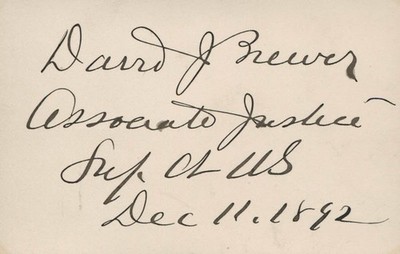 David J Brewer
Associate Justice
Sup. Ct US
Dec 11. 1892